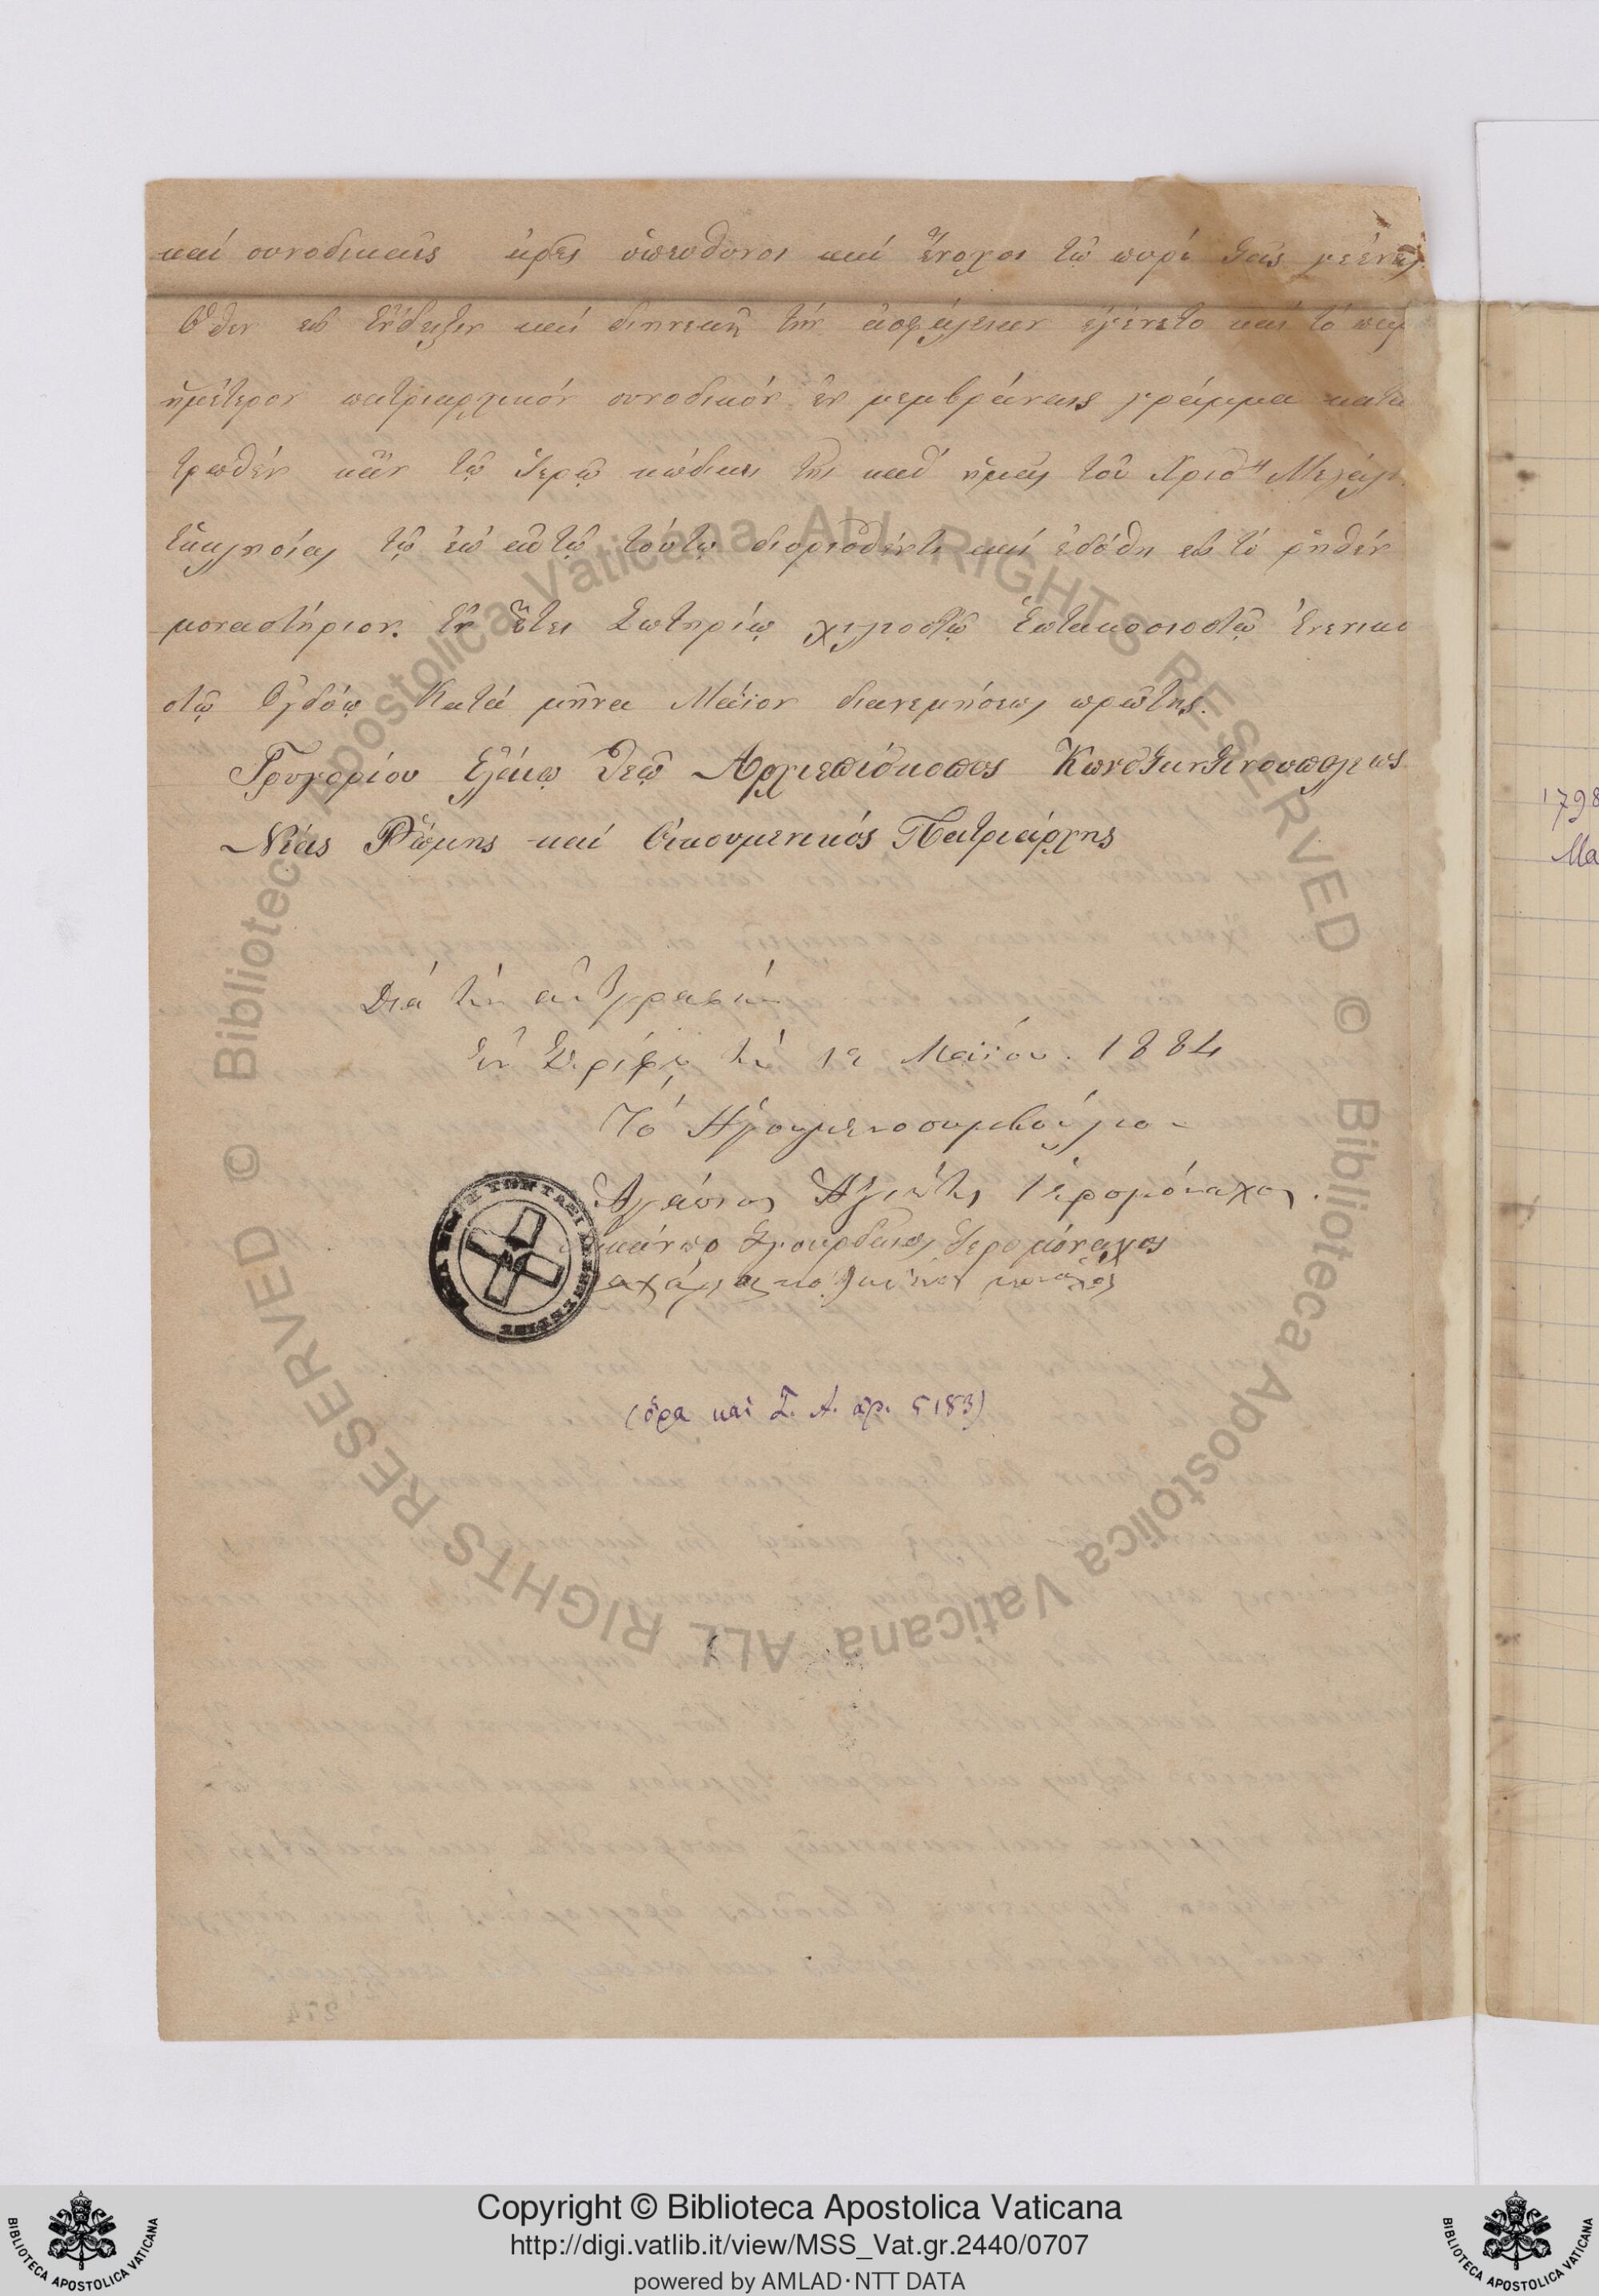 καί συνοδικαῖς ἀραῖς ὑπεύθυνοι καί ἔνοχοι τῷ πυρί τῆς γεέννης.
Ὅθεν εἰς ἔνδειξιν καί διηνεκῆ τήν ἀσφάλειαν ἐγένετο καί τό παρ
ἡμέτερον πατριαρχικόν συνοδικόν ἐν μεμβράναις γράμμα κατα
τρωθέν κἄν τῷ Ἱερῷ κώδικι τῆς καθ' ἡμᾶς τοῦ Χριστοῦ Μεγάλ.
Ἐκκλησίας τῷ ἐπ' αὐτῷ τούτῳ διορισθέντι καί ἐδόθη εἰς τό ῥηθέν
μοναστήριον. Ἐν ἔτει Σωτηρίῳ χιλιοστῷ ἑπτακοσιοστῷ ἐνενικο
στῷ Ὀγδόῳ Κατά μῆνα Μάϊον διανεμήσεως πρώτης.
Γρηγορίου ἐλέῳ Θεῷ Ἀρχιεπίσκοπος Κωνσταντινουπόλεως
Νέας Ῥώμης καί Οἰκουμενικός Πατριάρχης
Διά τήν ἀντιγραφήν
Ἐν Σερίφῳ τῇ 12 Μαΐου. 1884
Τό Ἡγουμενοσυμβούλιον
Ἱερομόναχος.
ἱερομόναχος
μοναχός
(ὅρα καὶ Σ. Λ. ἀρ. 5183)
1798
Μα
Copyright © Biblioteca Apostolica Vaticana
http://digi.vatlib.it/view/MSS_Vat.gr.2440/0707
powered by AMLAD·NTT DATA
BIBLIOTECA APOSTOLICA VATICANA
BIBLIOTECA APOSTOLICA VATICANA
© Biblioteca Apostolica Vaticana ALL RIGHTS RESERVED © Biblioteca Apostolica Vaticana ALL RIGHTS RESERVED